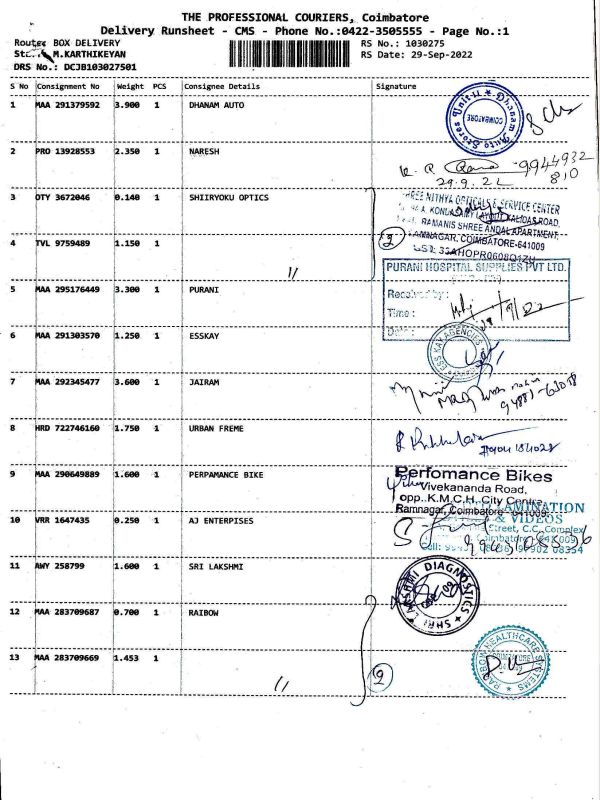 THE PROFESSIONAL COURIERS, Coimbatore
Delivery Runsheet - CMS - Phone No.:0422-3505555 - Page No.:1
Route: BOX DELIVERY
RS No.: 1030275
M.KARTHIKEYAN
RS Date: 29-Sep-2022
DRS No.: DCJB103027501
S No Consignment No Weight PCS Consignee Details Signature
1 MAA 291379592 3.900 1 DHANAM AUTO
Dhanam Auto Stores Unit-II
COIMBATORE
2 PRO 13928553 2.350 1 NARESH
9944932
810
29.9.22
3 OTY 3672046 0.140 1 SHIIRYOKU OPTICS
SHREE NITHYA OPTICALS & SERVICE CENTER
RAMANIS SHREE ANDAL APARTMENT,
COIMBATORE-641009
4 TVL 9759489 1.150 1 "
2
5 MAA 295176449 3.300 1 PURANI
PURANI HOSPITAL SUPPLIES PVT LTD.
Received by :
Time :
Date :
6 MAA 291303570 1.250 1 ESSKAY
ESS KAY AGENCIES
7 MAA 292345477 3.600 1 JAIRAM
8 HRD 722746160 1.750 1 URBAN FREME
9 MAA 290649889 1.600 1 PERPAMANCE BIKE
Perfomance Bikes
Vivekananda Road,
opp. K.M.C.H. City Centre,
Ramnagar, Coimbatore-641009.
10 VRR 1647435 0.250 1 AJ ENTERPISES
LAMINATION
& VIDEOS
Street, C.C. Complex
11 AWY 258799 1.600 1 SRI LAKSHMI
SHRI LAKSHMI DIAGNOSTICS
12 MAA 283709687 0.700 1 RAIBOW
13 MAA 283709669 1.453 1 "
2
RAINBOW HEALTHCARE SYSTEMS